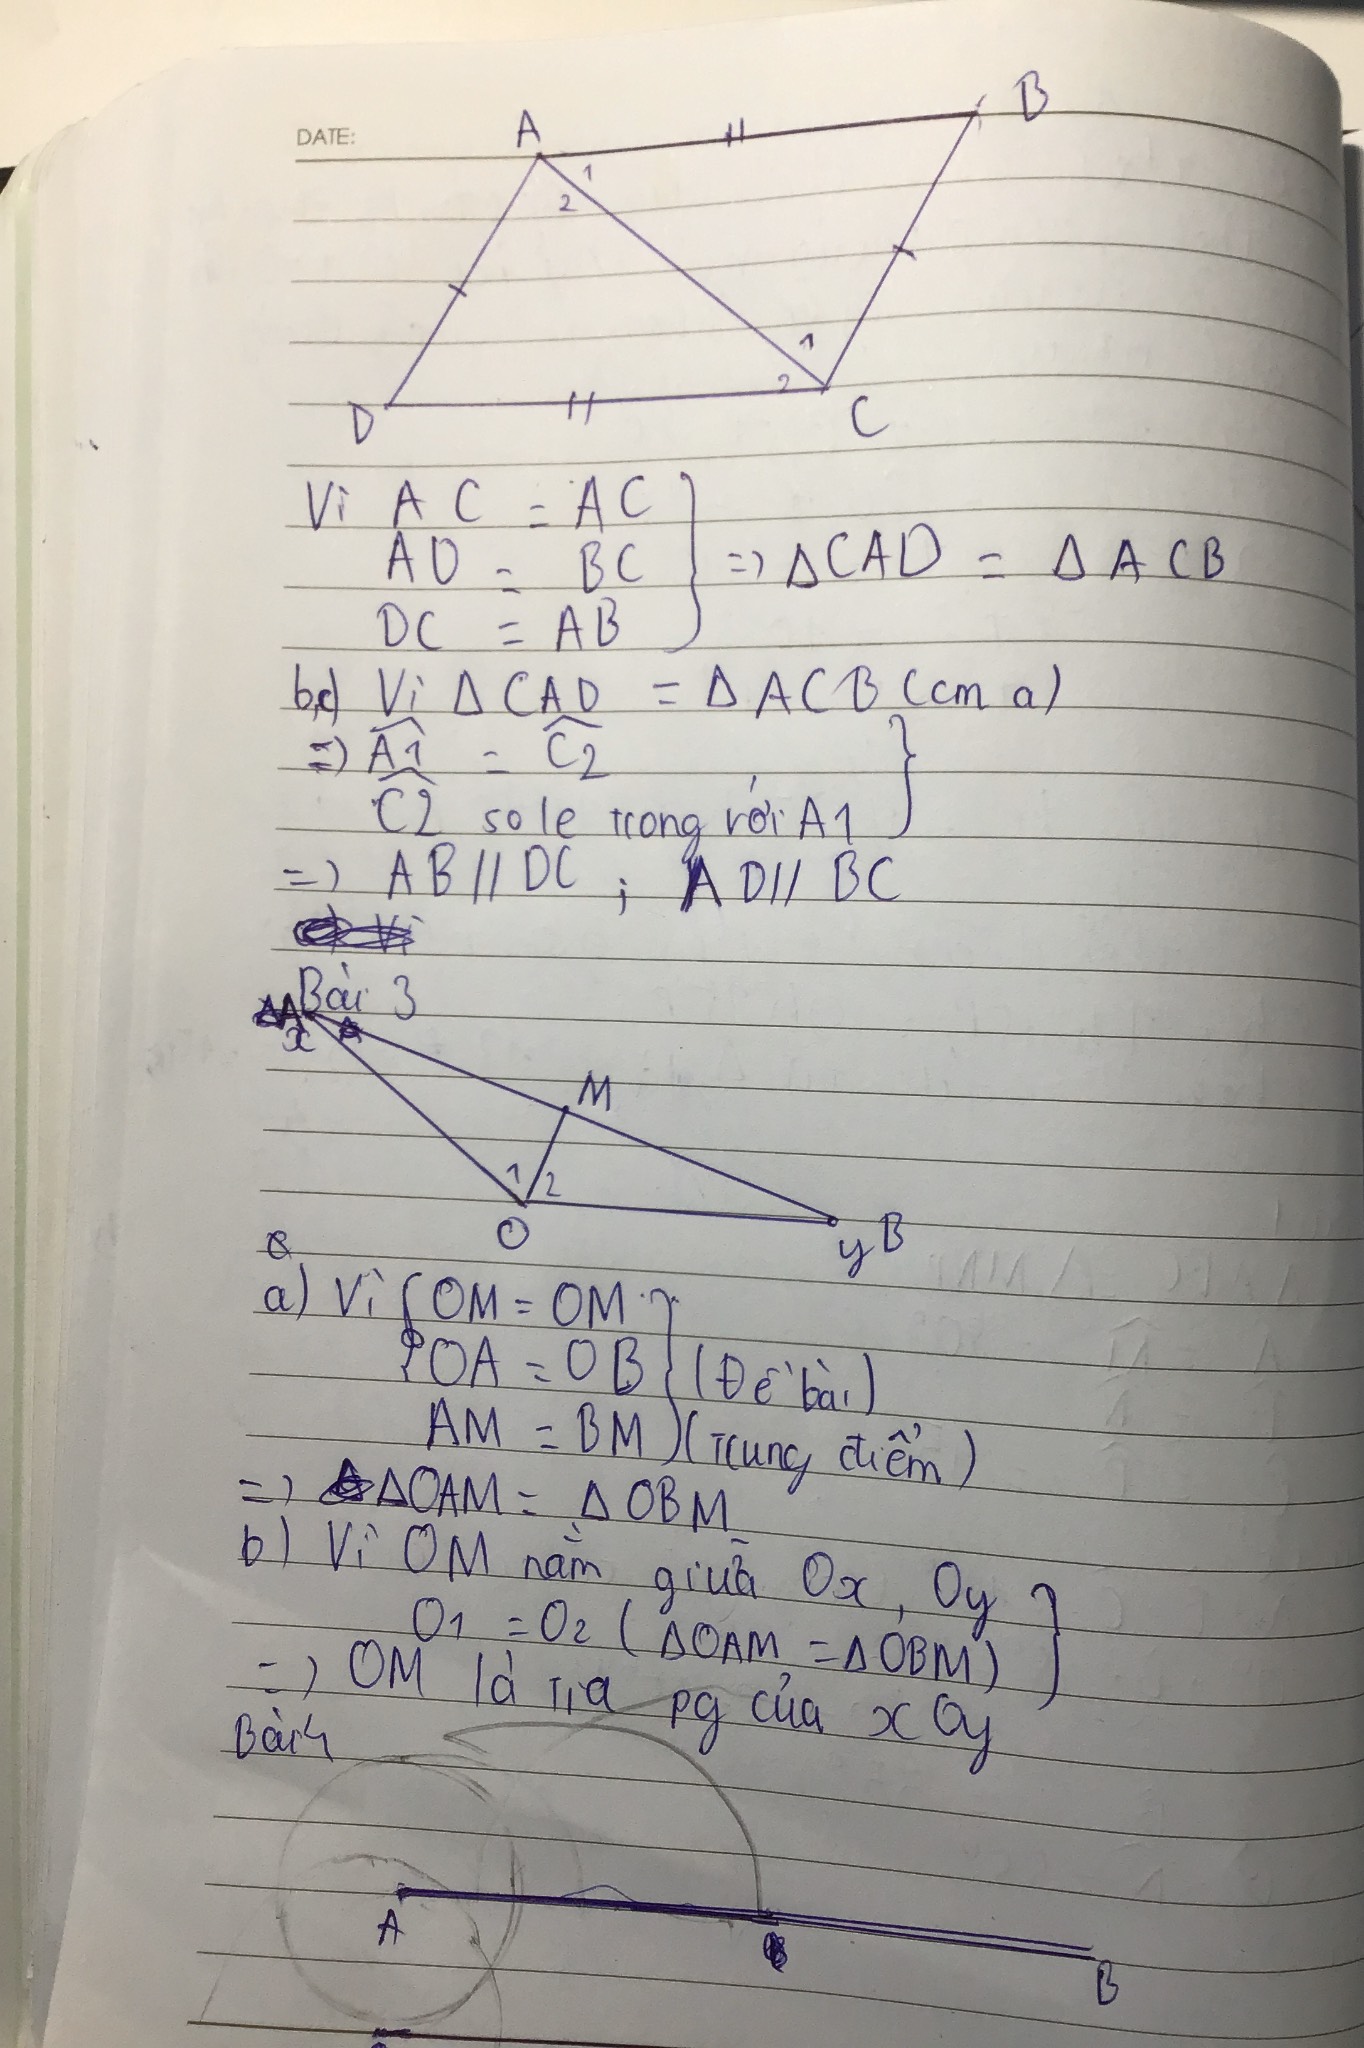 DATE:
A
B
1
2
1
2
D
C
Vì AC = AC
AD = BC
DC = AB
=> ΔCAD = ΔACB
b,c) Vì ΔCAD = ΔACB (cm a)
=> A1 = C2
C2 so le trong với A1
=> AB // DC ; AD // BC
Vì
Bài 3
x A
M
1 2
O
y B
a) Vì OM = OM
OA = OB (Đề bài)
AM = BM (trung điểm)
=> ΔOAM = ΔOBM
b) Vì OM nằm giữa Ox, Oy
O1 = O2 (ΔOAM = ΔOBM)
=> OM là tia pg của xOy
Bài 4
A
B